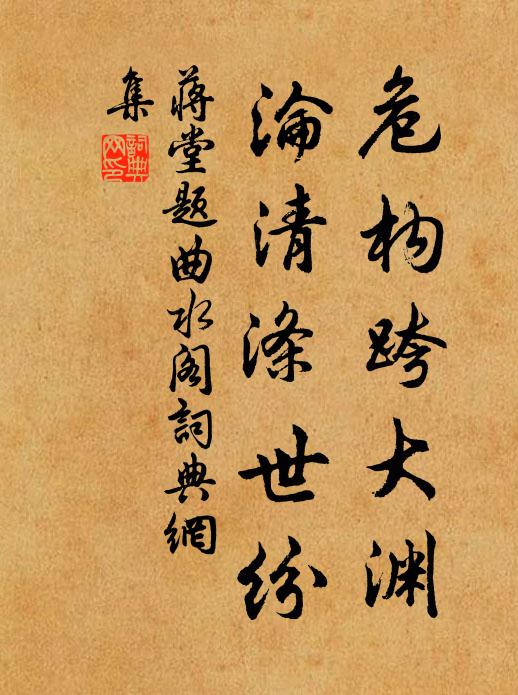 危构跨大渊
沦清涤世纷
蔣堂题曲水阁詞典網
集
詞典
网印